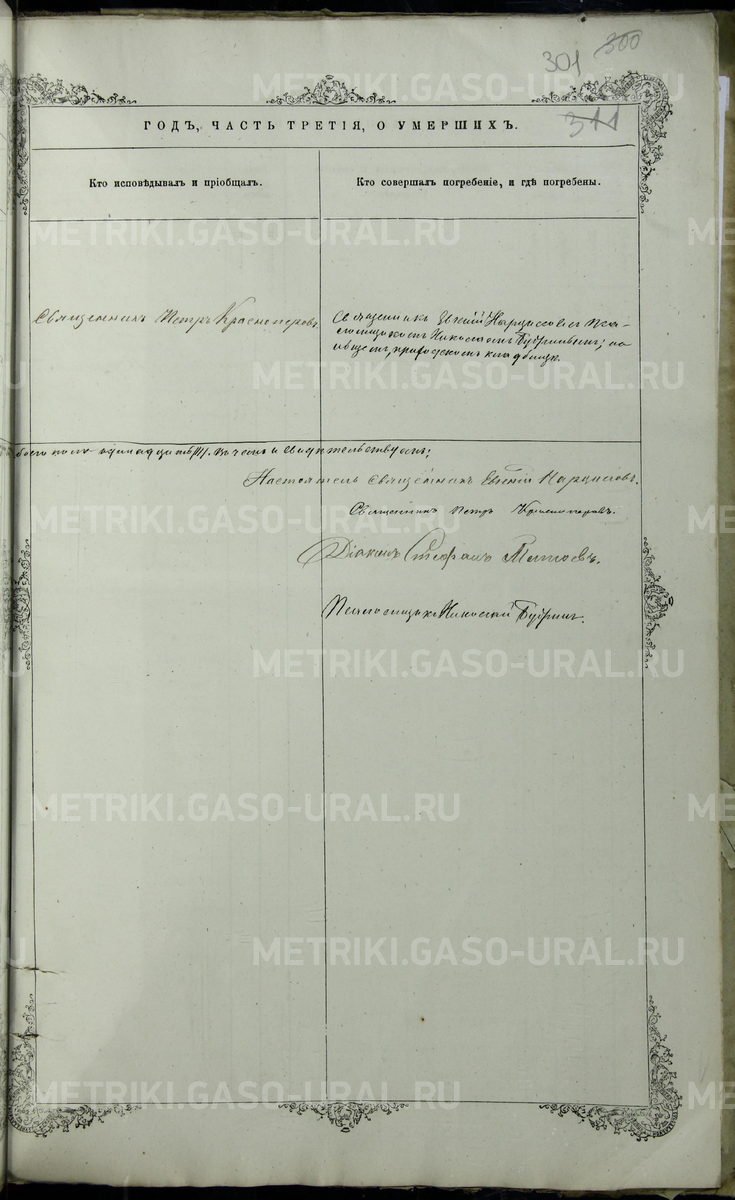 301 300
311
ГОДЪ, ЧАСТЬ ТРЕТІЯ, О УМЕРШИХЪ.
Кто исповѣдывалъ и пріобщалъ.
Кто совершалъ погребеніе, и гдѣ погребены.
Священникъ Петръ Красноперовъ.
Священникъ Евгеній Нарциссовъ съ Пса-
ломщикомъ Николаемъ Будринымъ; на
общемъ, приходскомъ кладбищѣ.
обоего пола одинадцать /11/. Въ чемъ и свидѣтельствуемъ:
Настоятель Священникъ Евгеній Нарциссовъ.
Священникъ Петръ Красноперовъ.
Діаконъ Стефанъ
Псаломщикъ Николай Будринъ.
METRIKI.GASO-URAL.RU